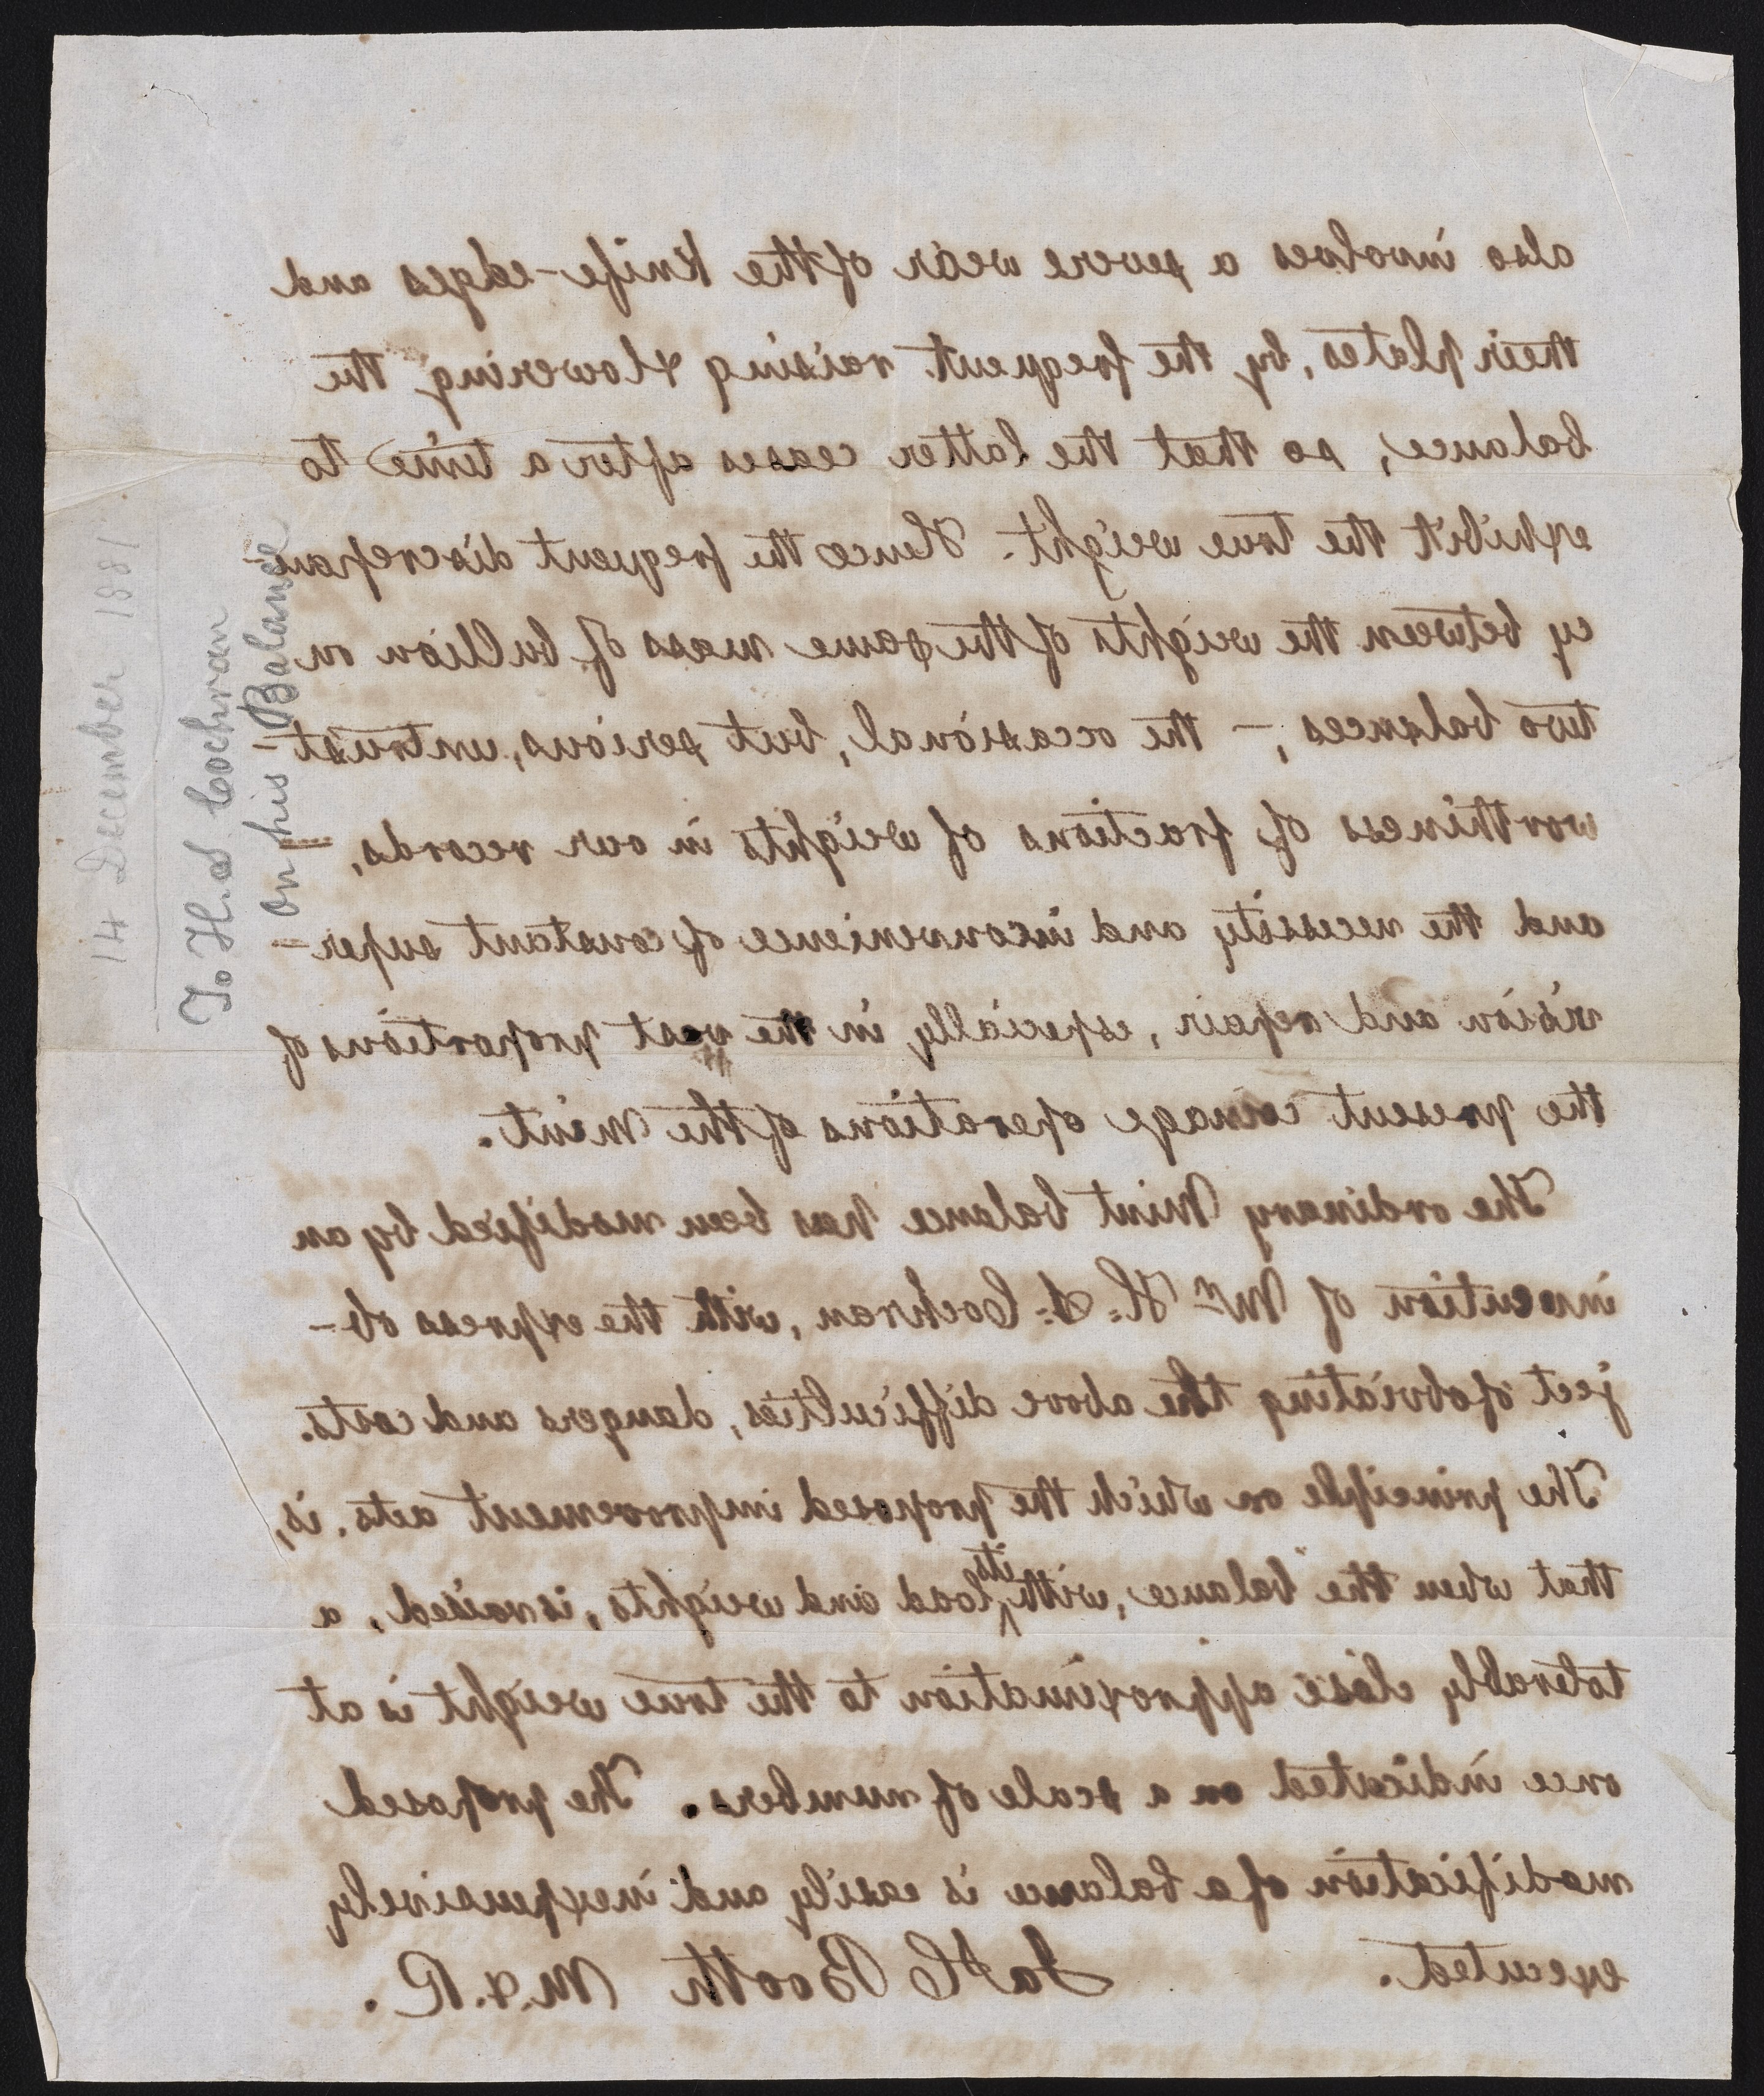 also involves a severe wear of the Knife-edges and
their plates, by the frequent raising & lowering the
balance, so that the latter ceases after a time to
exhibit the true weight. Hence the frequent discrepan-
cy between the weights of the same mass of bullion on
two balances; – the occasional, but serious, untrust-
worthiness of fractions of weights in our records, –
and the necessity and inconvenience of constant super-
vision and repair, especially in the vast proportions of
the present coinage operations of the Mint.
The ordinary Mint balance has been modified by an
invention of Mr H. S. Cochran, with the express ob-
ject of obviating the above difficulties, dangers and costs.
The principle on which the proposed improvement acts, is,
that when the balance, with its load and weights, is raised, a
tolerably close approximation to the true weight is at
once indicated on a scale of numbers. The proposed
modification of a balance is easily and inexpensively
executed. Ja C Booth M. & R.
14 December 1881
To H. S Cochran
on his Balance